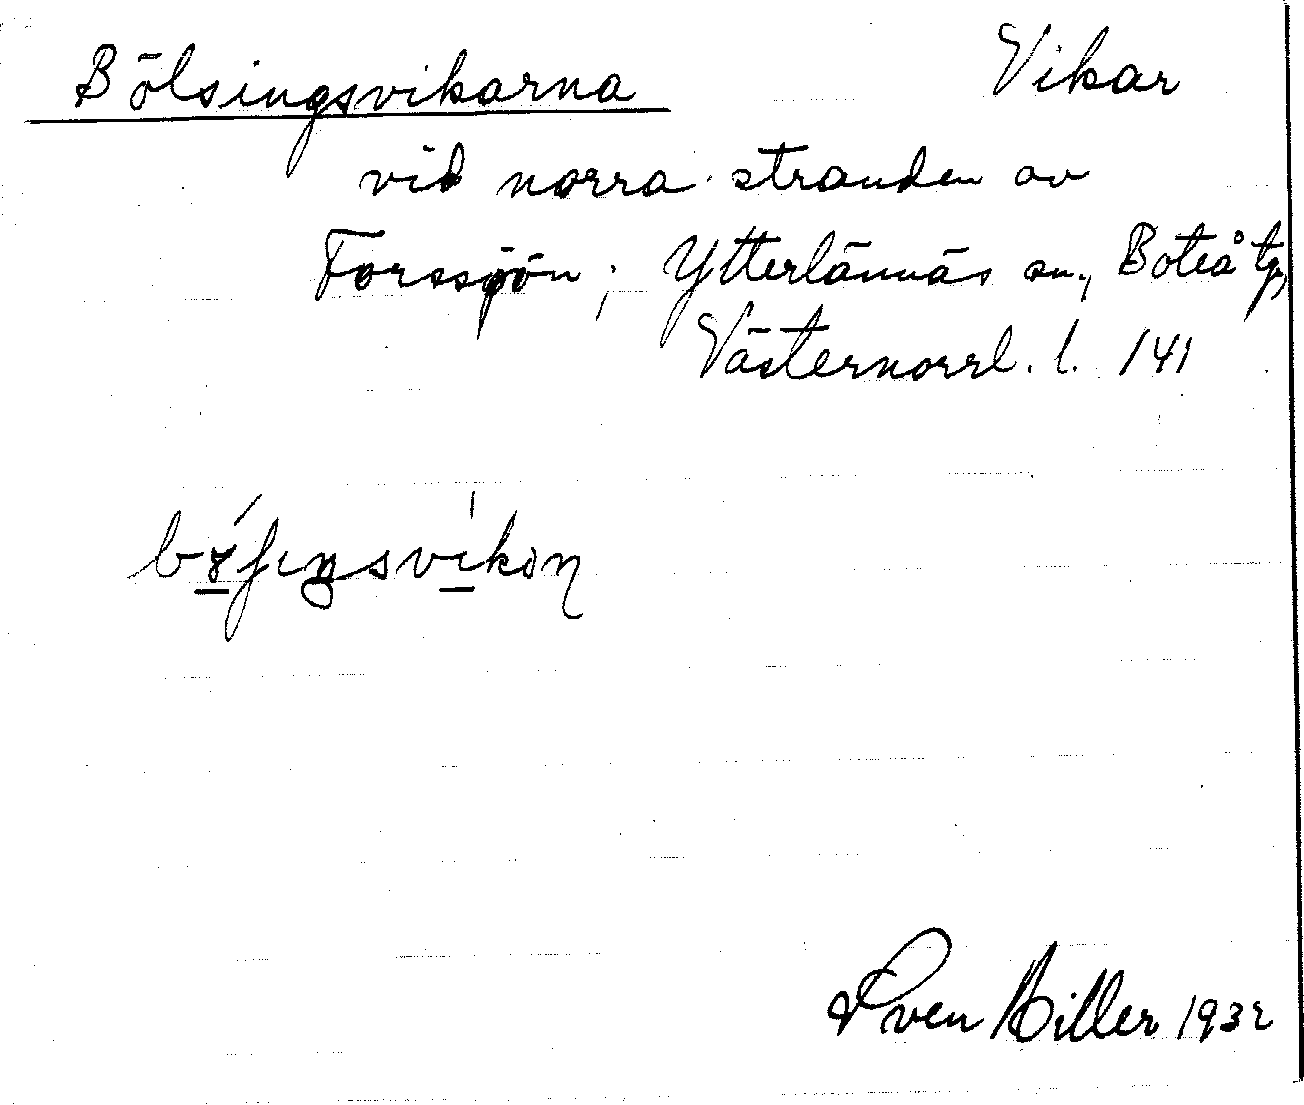 Bölsingsvikarna Vikar
vid norra stranden av
Forssjön; Ytterlännäs sn., Boteå tg,
Västernorrl. l. 141
Sven Hiller 1932